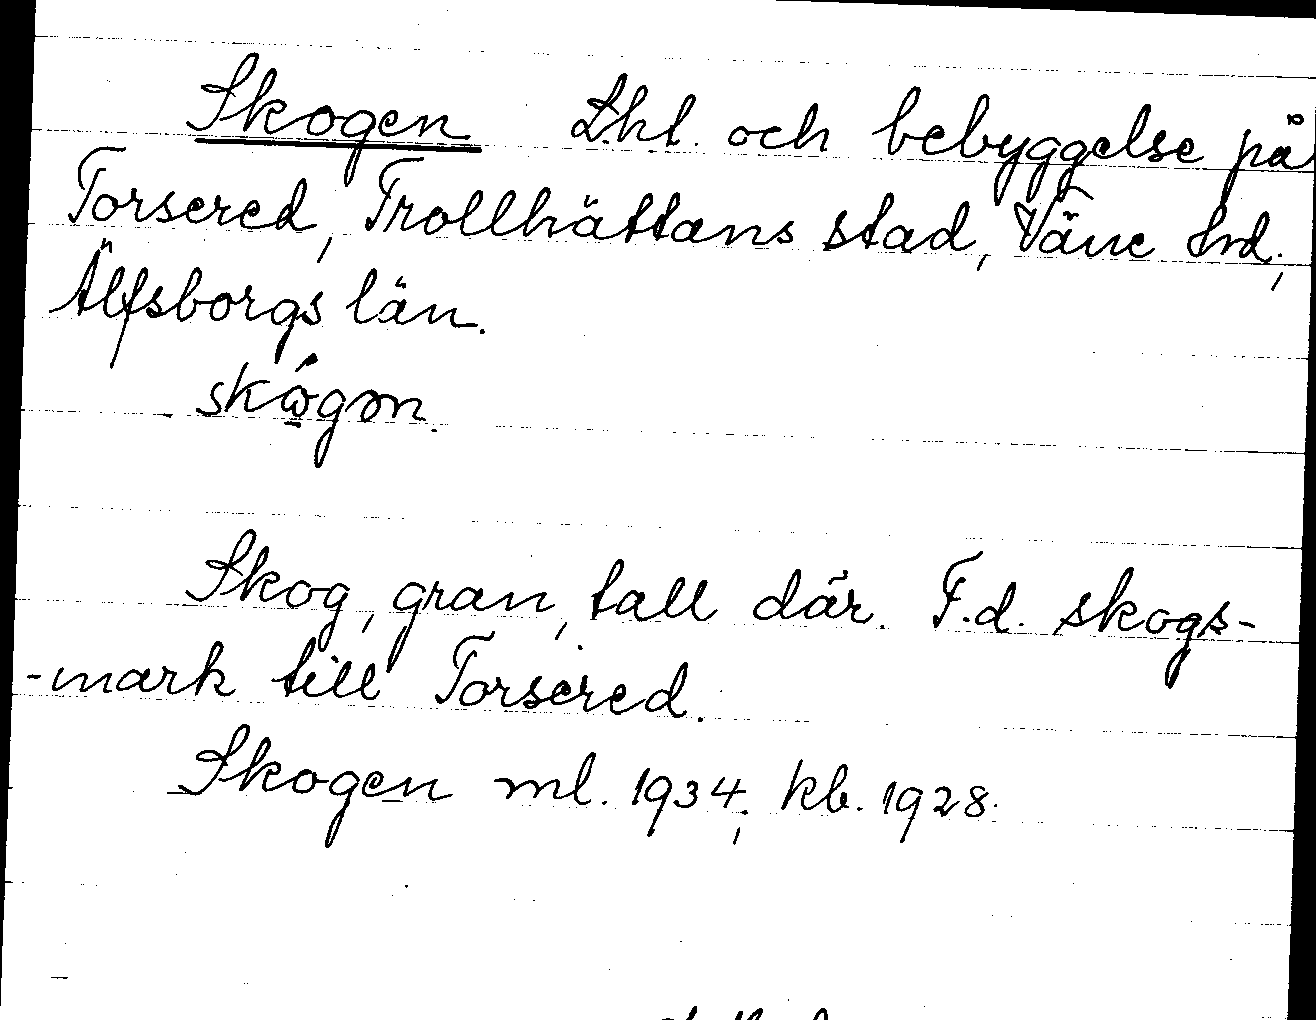 Skogen Lht. och bebyggelse på
Torsered, Trollhättans stad, Väne hd,
Älfsborgs län.
skógən.
Skog, gran, tall där. F.d. skogs-
-mark till Torsered.
Skogen ml. 1934; kb. 1928.